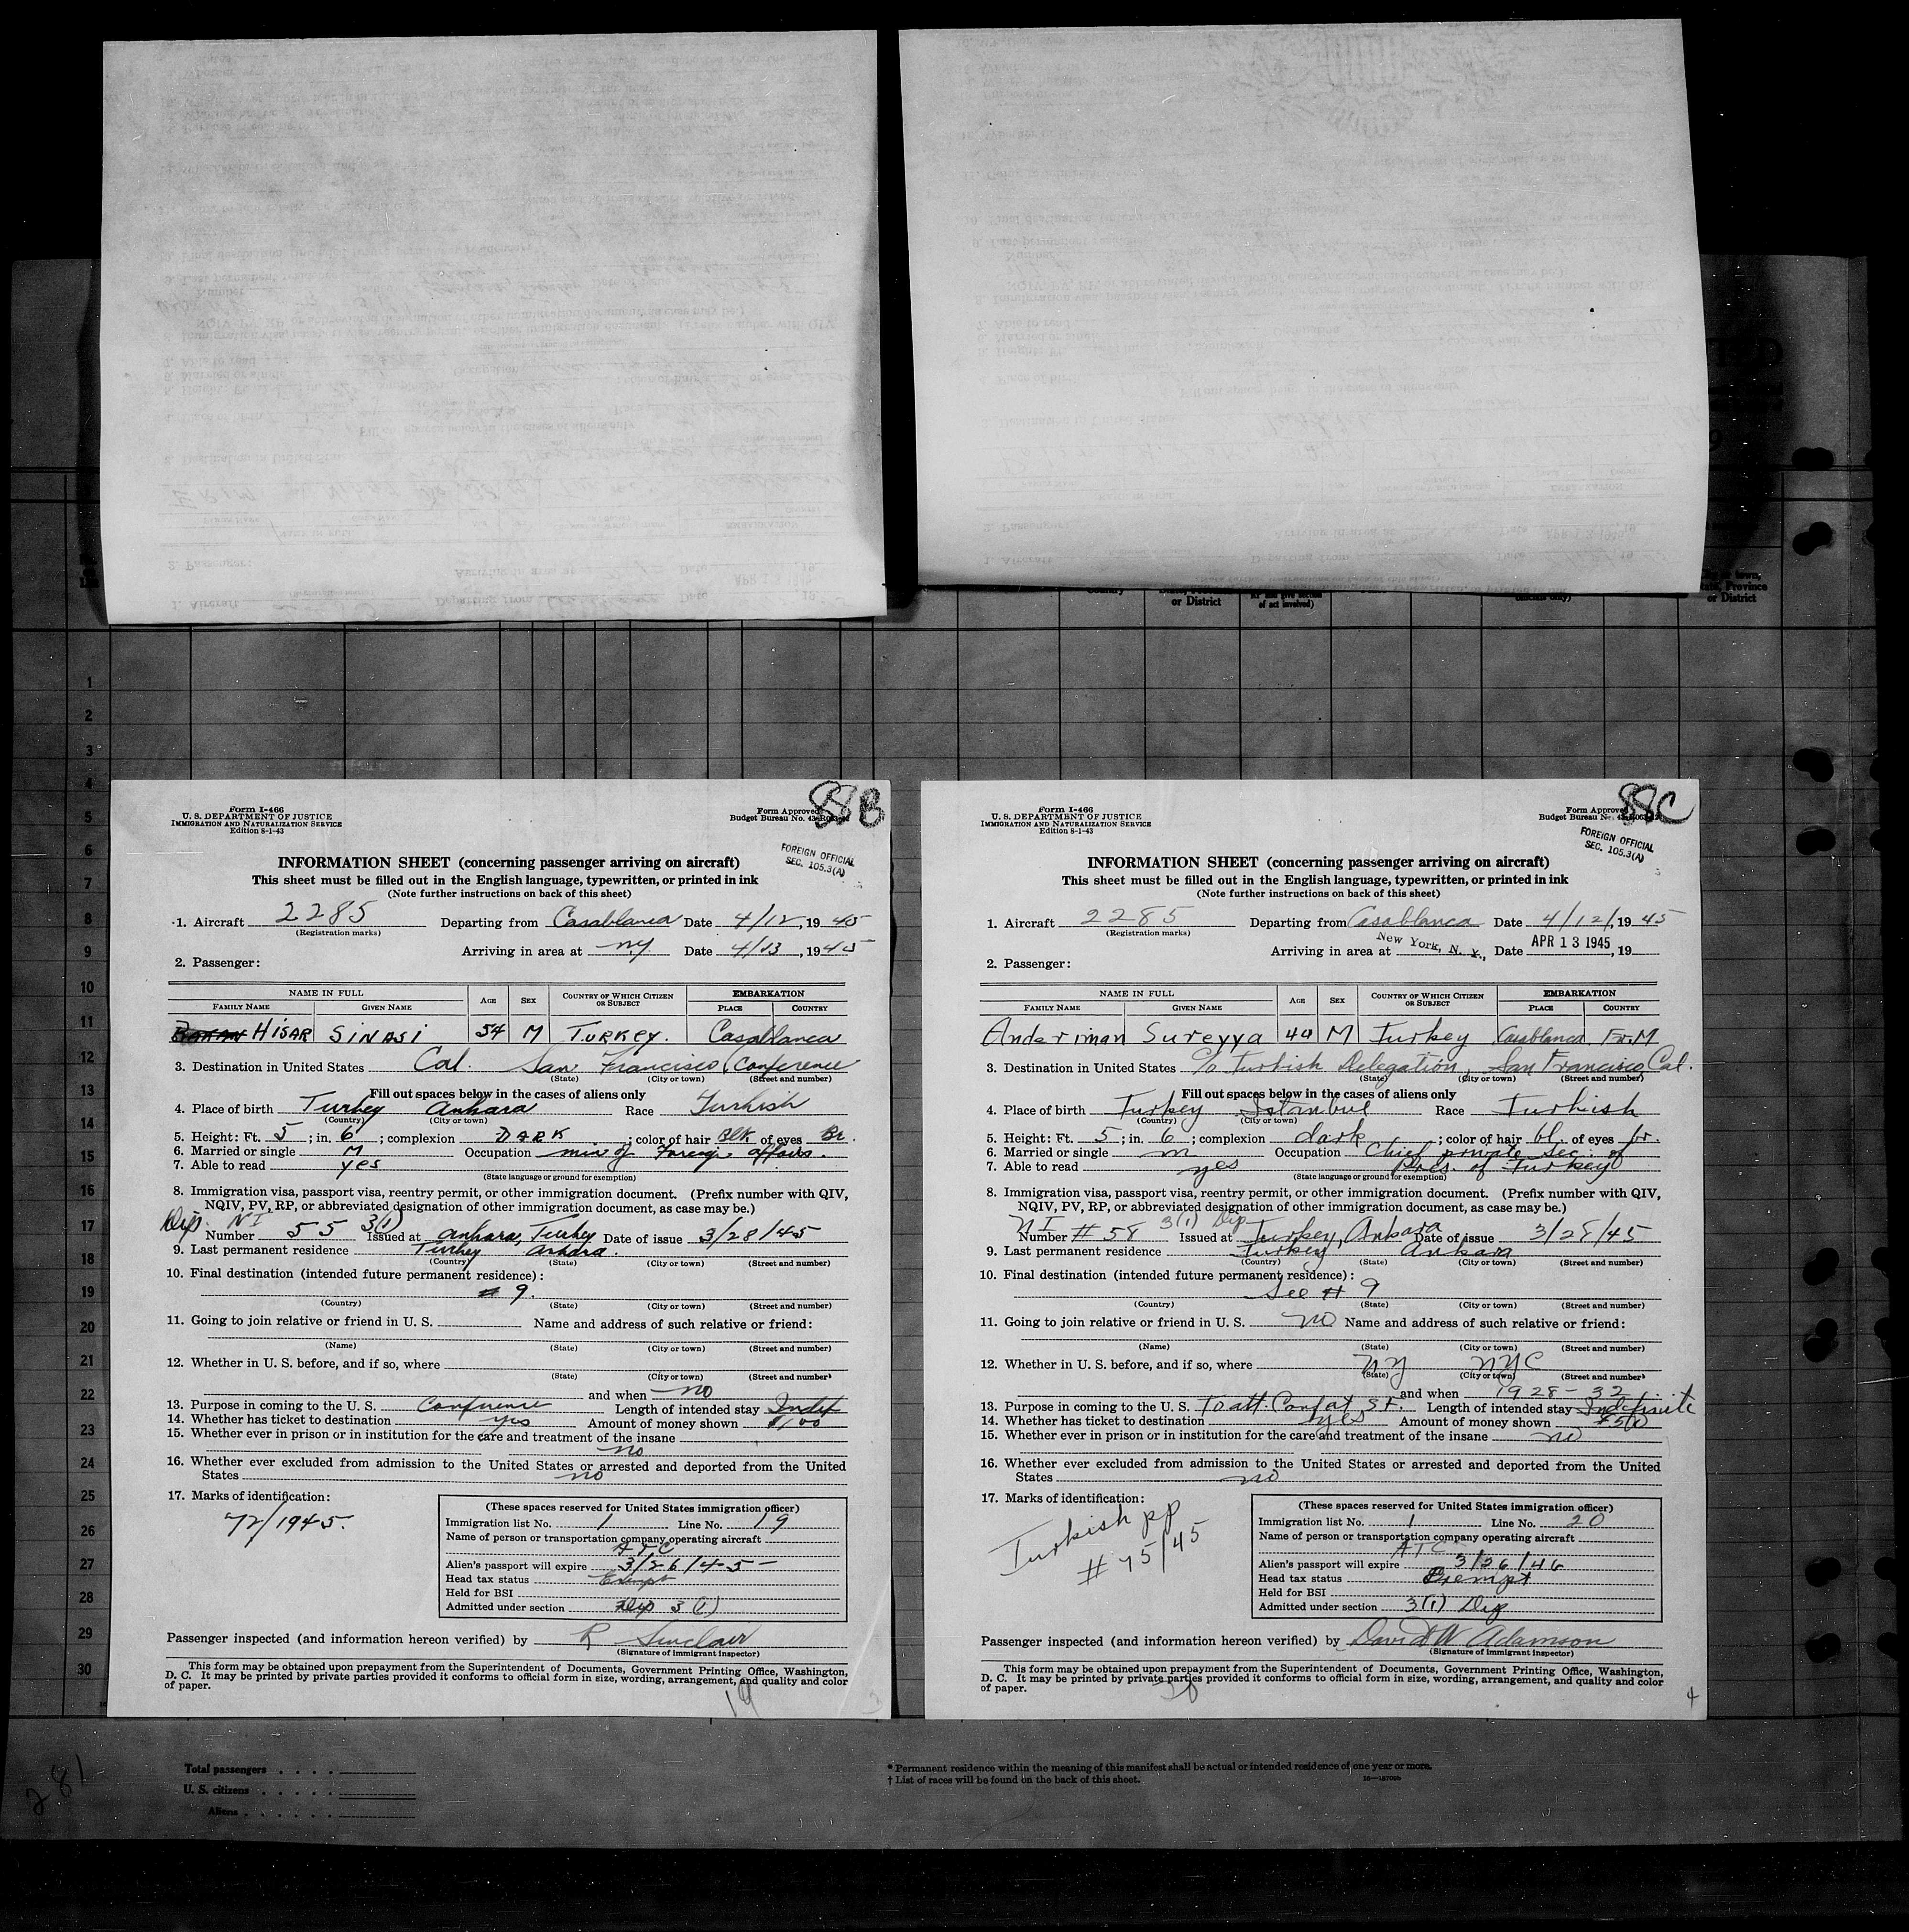 or District
or District
1
2
3
4
5
6
7
8
9
10
11
12
13
14
15
16
17
18
19
20
21
22
23
24
25
26
27
28
29
30
Form I-466
U. S. DEPARTMENT OF JUSTICE
IMMIGRATION AND NATURALIZATION SERVICE
Edition 8-1-43
Form Approved
Budget Bureau No.
88B
FOREIGN OFFICIAL
SEC. 105.3(A)
INFORMATION SHEET (concerning passenger arriving on aircraft)
This sheet must be filled out in the English language, typewritten, or printed in ink
(Note further instructions on back of this sheet)
1. Aircraft 2285 Departing from Casablanca Date 4/12, 19 45
(Registration marks)
Arriving in area at NY Date 4/13, 19 45
2. Passenger:
NAME IN FULL AGE SEX COUNTRY OF WHICH CITIZEN OR SUBJECT EMBARKATION
FAMILY NAME GIVEN NAME PLACE COUNTRY
HISAR SINASI 54 M TURKEY. Casablanca
3. Destination in United States Cal. San Francisco (Conference
(State) (City or town) (Street and number)
Fill out spaces below in the cases of aliens only
4. Place of birth Turkey Ankara Race Turkish
(Country) (City or town)
5. Height: Ft. 5; in. 6; complexion DARK; color of hair BLK of eyes Br.
6. Married or single M Occupation min of Foreign affairs.
7. Able to read yes
(State language or ground for exemption)
8. Immigration visa, passport visa, reentry permit, or other immigration document. (Prefix number with QIV,
NQIV, PV, RP, or abbreviated designation of other immigration document, as case may be.)
Dip. NI 3(1)
Number 55 Issued at Ankara, Turkey Date of issue 3/28/45
9. Last permanent residence Turkey Ankara.
(Country) (State) (City or town) (Street and number)
10. Final destination (intended future permanent residence):
# 9.
(Country) (State) (City or town) (Street and number)
11. Going to join relative or friend in U. S. Name and address of such relative or friend:
(Name) (State) (City or town) (Street and number)
12. Whether in U. S. before, and if so, where
(State) (City or town) (Street and number)
and when no
13. Purpose in coming to the U. S. Conference Length of intended stay Indef
14. Whether has ticket to destination yes Amount of money shown $100
15. Whether ever in prison or in institution for the care and treatment of the insane
no
16. Whether ever excluded from admission to the United States or arrested and deported from the United
States no
17. Marks of identification:
72/1945.
(These spaces reserved for United States immigration officer)
Immigration list No. 1 Line No. 19
Name of person or transportation company operating aircraft
ATC
Alien's passport will expire 3/26/45
Head tax status Exempt
Held for BSI
Admitted under section Dip 3(1)
Passenger inspected (and information hereon verified) by R Sinclair
(Signature of immigrant inspector)
This form may be obtained upon prepayment from the Superintendent of Documents, Government Printing Office, Washington,
D. C. It may be printed by private parties provided it conforms to official form in size, wording, arrangement, and quality and color
of paper.
19
3
Form I-466
U. S. DEPARTMENT OF JUSTICE
IMMIGRATION AND NATURALIZATION SERVICE
Edition 8-1-43
Form Approved
Budget Bureau No.
88C
FOREIGN OFFICIAL
SEC. 105.3(A)
INFORMATION SHEET (concerning passenger arriving on aircraft)
This sheet must be filled out in the English language, typewritten, or printed in ink
(Note further instructions on back of this sheet)
1. Aircraft 2285 Departing from Casablanca Date 4/12/, 19 45
(Registration marks)
Arriving in area at New York, N. Y., Date APR 13 1945, 19
2. Passenger:
NAME IN FULL AGE SEX COUNTRY OF WHICH CITIZEN OR SUBJECT EMBARKATION
FAMILY NAME GIVEN NAME PLACE COUNTRY
Anderiman Sureyya 40 M Turkey Casablanca Fr. M
3. Destination in United States c/o Turkish Delegation, San Francisco, Cal.
(State) (City or town) (Street and number)
Fill out spaces below in the cases of aliens only
4. Place of birth Turkey Istanbul Race Turkish
(Country) (City or town)
5. Height: Ft. 5; in. 6; complexion dark; color of hair bl. of eyes br.
6. Married or single m Occupation Chief private Sec. of
7. Able to read yes Pres. of Turkey
(State language or ground for exemption)
8. Immigration visa, passport visa, reentry permit, or other immigration document. (Prefix number with QIV,
NQIV, PV, RP, or abbreviated designation of other immigration document, as case may be.)
NI 3(1) Dip
Number # 58 Issued at Turkey, Ankara Date of issue 3/28/45
9. Last permanent residence Turkey Ankara
(Country) (State) (City or town) (Street and number)
10. Final destination (intended future permanent residence):
See # 9
(Country) (State) (City or town) (Street and number)
11. Going to join relative or friend in U. S. no Name and address of such relative or friend:
(Name) (State) (City or town) (Street and number)
12. Whether in U. S. before, and if so, where NY NYC
(State) (City or town) (Street and number)
and when 1928-32
13. Purpose in coming to the U. S. To att. Conf at S.F. Length of intended stay Indefinite
14. Whether has ticket to destination yes Amount of money shown
15. Whether ever in prison or in institution for the care and treatment of the insane no
16. Whether ever excluded from admission to the United States or arrested and deported from the United
States no
17. Marks of identification:
Turkish pp
# 75/45
(These spaces reserved for United States immigration officer)
Immigration list No. 1 Line No. 20
Name of person or transportation company operating aircraft
ATC
Alien's passport will expire 3/26/46
Head tax status Exempt
Held for BSI
Admitted under section 3(1) Dip
Passenger inspected (and information hereon verified) by David W Adamson
(Signature of immigrant inspector)
This form may be obtained upon prepayment from the Superintendent of Documents, Government Printing Office, Washington,
D. C. It may be printed by private parties provided it conforms to official form in size, wording, arrangement, and quality and color
of paper.
20
4
281
Total passengers
U. S. citizens
Aliens
* Permanent residence within the meaning of this manifest shall be actual or intended residence of one year or more.
† List of races will be found on the back of this sheet.